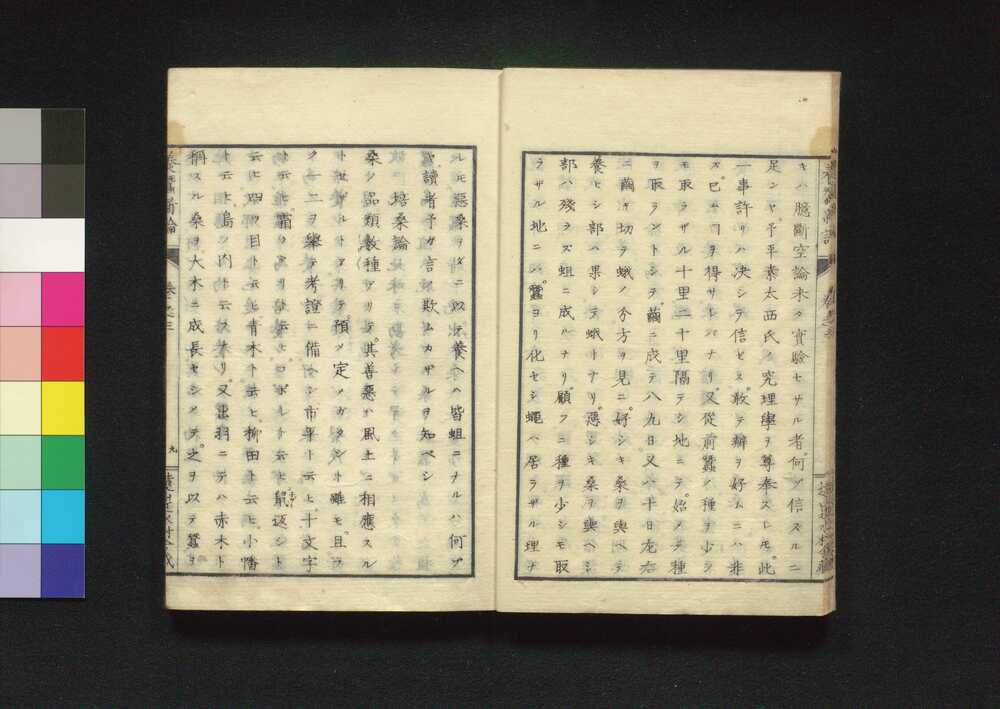 キハ臆斷空論未タ實驗セサル者何ゾ信スルニ
足ンヤ予平素太西氏ノ究理學ヲ尊奉スレモ此
一事許リハ决シテ信ビス敢テ辯ヲ好ムニハ非
ズ已ムヿヲ得サレバナリ又從前蠶ノ種ヲ少シ
モ取ラザル十里二十里隔テシ地ニテ始メテ種
ヲ取ラントシテ繭ニ成テ八九日又ハ十日左右
ニ繭ヲ切ラ蛾ノ多方ヲ見ニ好シキ桑ヲ與ヘテ
養ヒシ部ハ果シテ蛾トナリ惡シキ桑ヲ與ヘシ
部ハ殘ラズ蛆ニ成ハナリ顧フニ種ヲ少シモ取
ラザル地ニシ蠶ヨリ化セシ蠅ハ居ラザル理ナ
ルモ惡桑ヲダニ以テ養ヘハ皆蛆ニナルハ何ゾ
ヤ讀者予ガ言ノ欺ムカザルヲ知ベシ
培桑論
桑ノ品類數種アリテ其善惡ハ風土ニ相應スル
トセザルトヲアリテ預ジメ定メガタシト雖モ且ラ
ク一二ヲ擧テ考證ニ備ヘン市平ト云ヒ十文字
ト云ヒ霜ウヅリト云ヒロボレト云ヒ鼠返シト
云ヒ四ツ目ト云ヒ青木ト云ヒ柳田ト云ヒ小幡
ト云ヒ島ノ内ト云フアリ又出羽ニテハ赤木ト
稱スル桑ヲ大木ニ成長セシメテ之ヲ以テ蠶ヲ
養蠶新論 卷之三 九